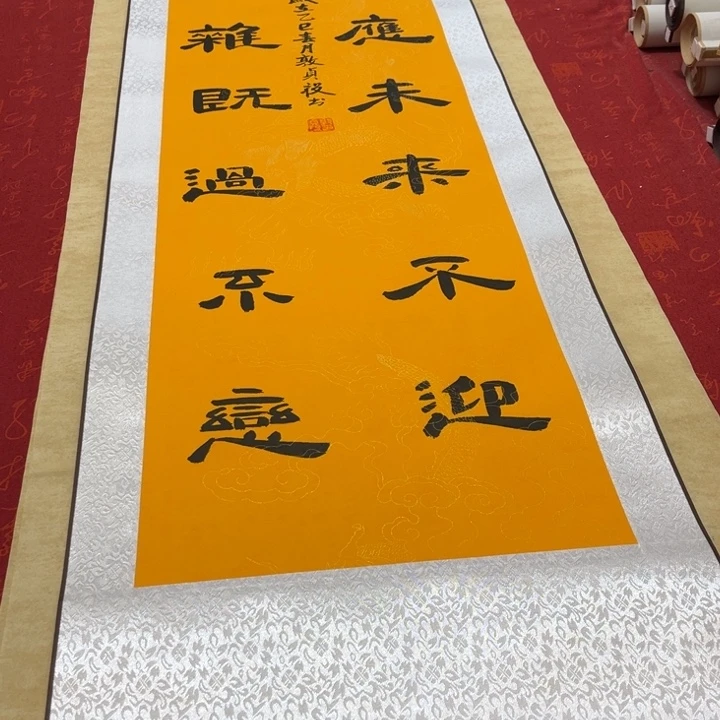 應未來不迎
雜既過不戀
乙巳春月敬貞书